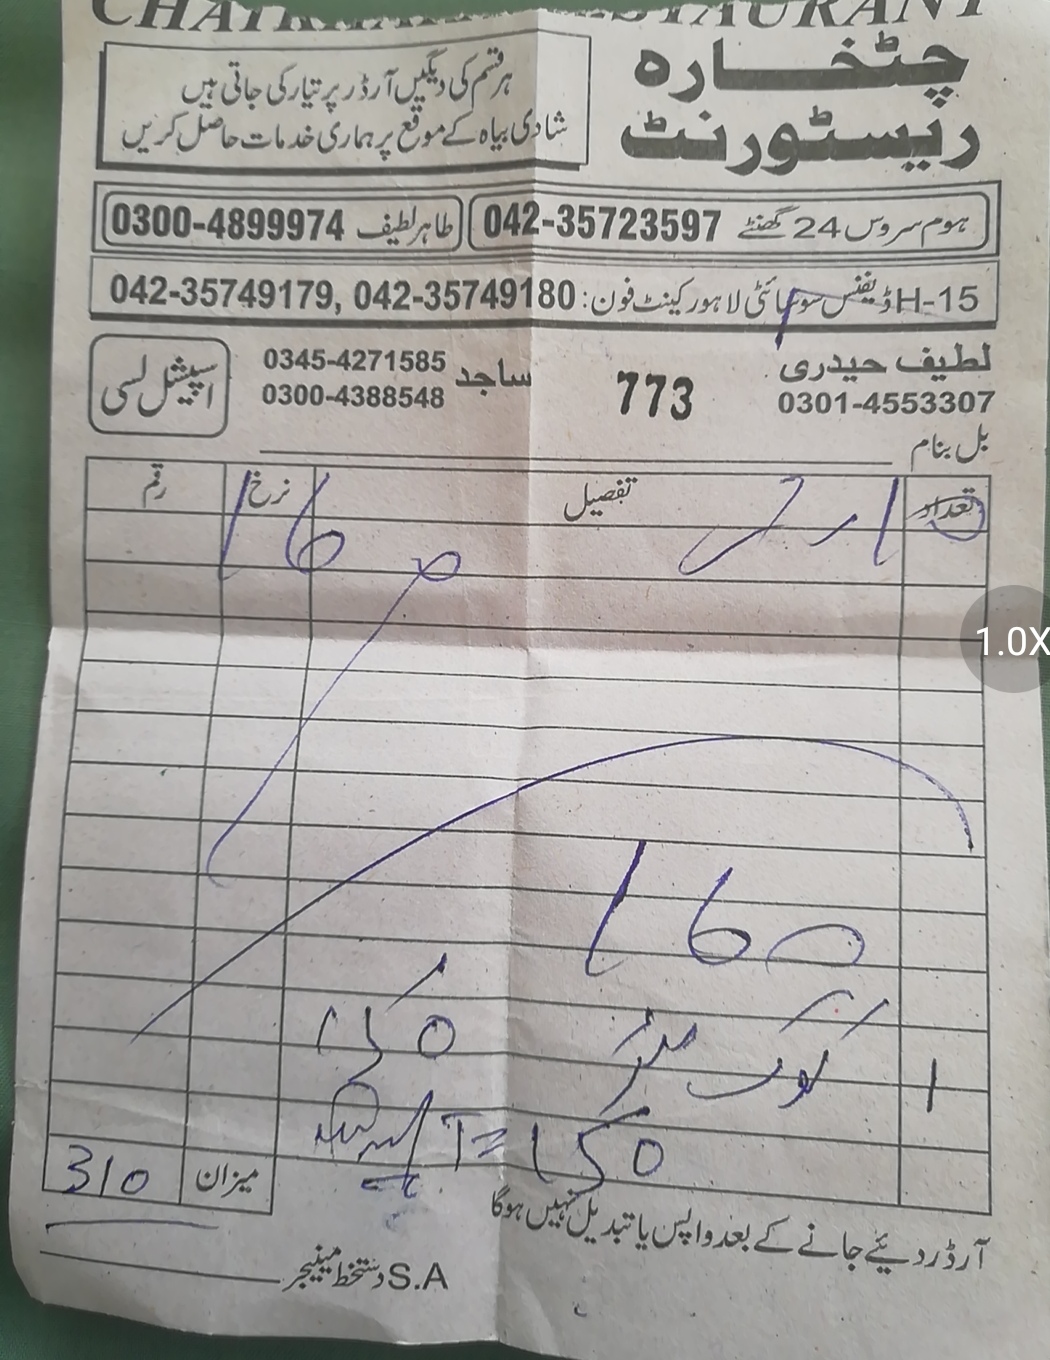 CHATKHARA RESTAURANT
چٹخارہ
ریسٹورنٹ
ہر قسم کی دیگیں آرڈر پر تیار کی جاتی ہیں
شادی بیاہ کے موقع پر ہماری خدمات حاصل کریں
ہوم سروس 24 گھنٹے 042-35723597
طاہر لطیف 0300-4899974
H-15 ڈیفنس سوسائٹی لاہور کینٹ فون: 042-35749179, 042-35749180
لطیف حیدری
0301-4553307
773
ساجد 0345-4271585
0300-4388548
اسپیشل لسی
بل بنام
تعداد تفصیل نرخ رقم
160
1
150
= 150
میزان 310
آرڈر دیئے جانے کے بعد واپس یا تبدیل نہیں ہوگا
S.A دستخط مینیجر
1.0X